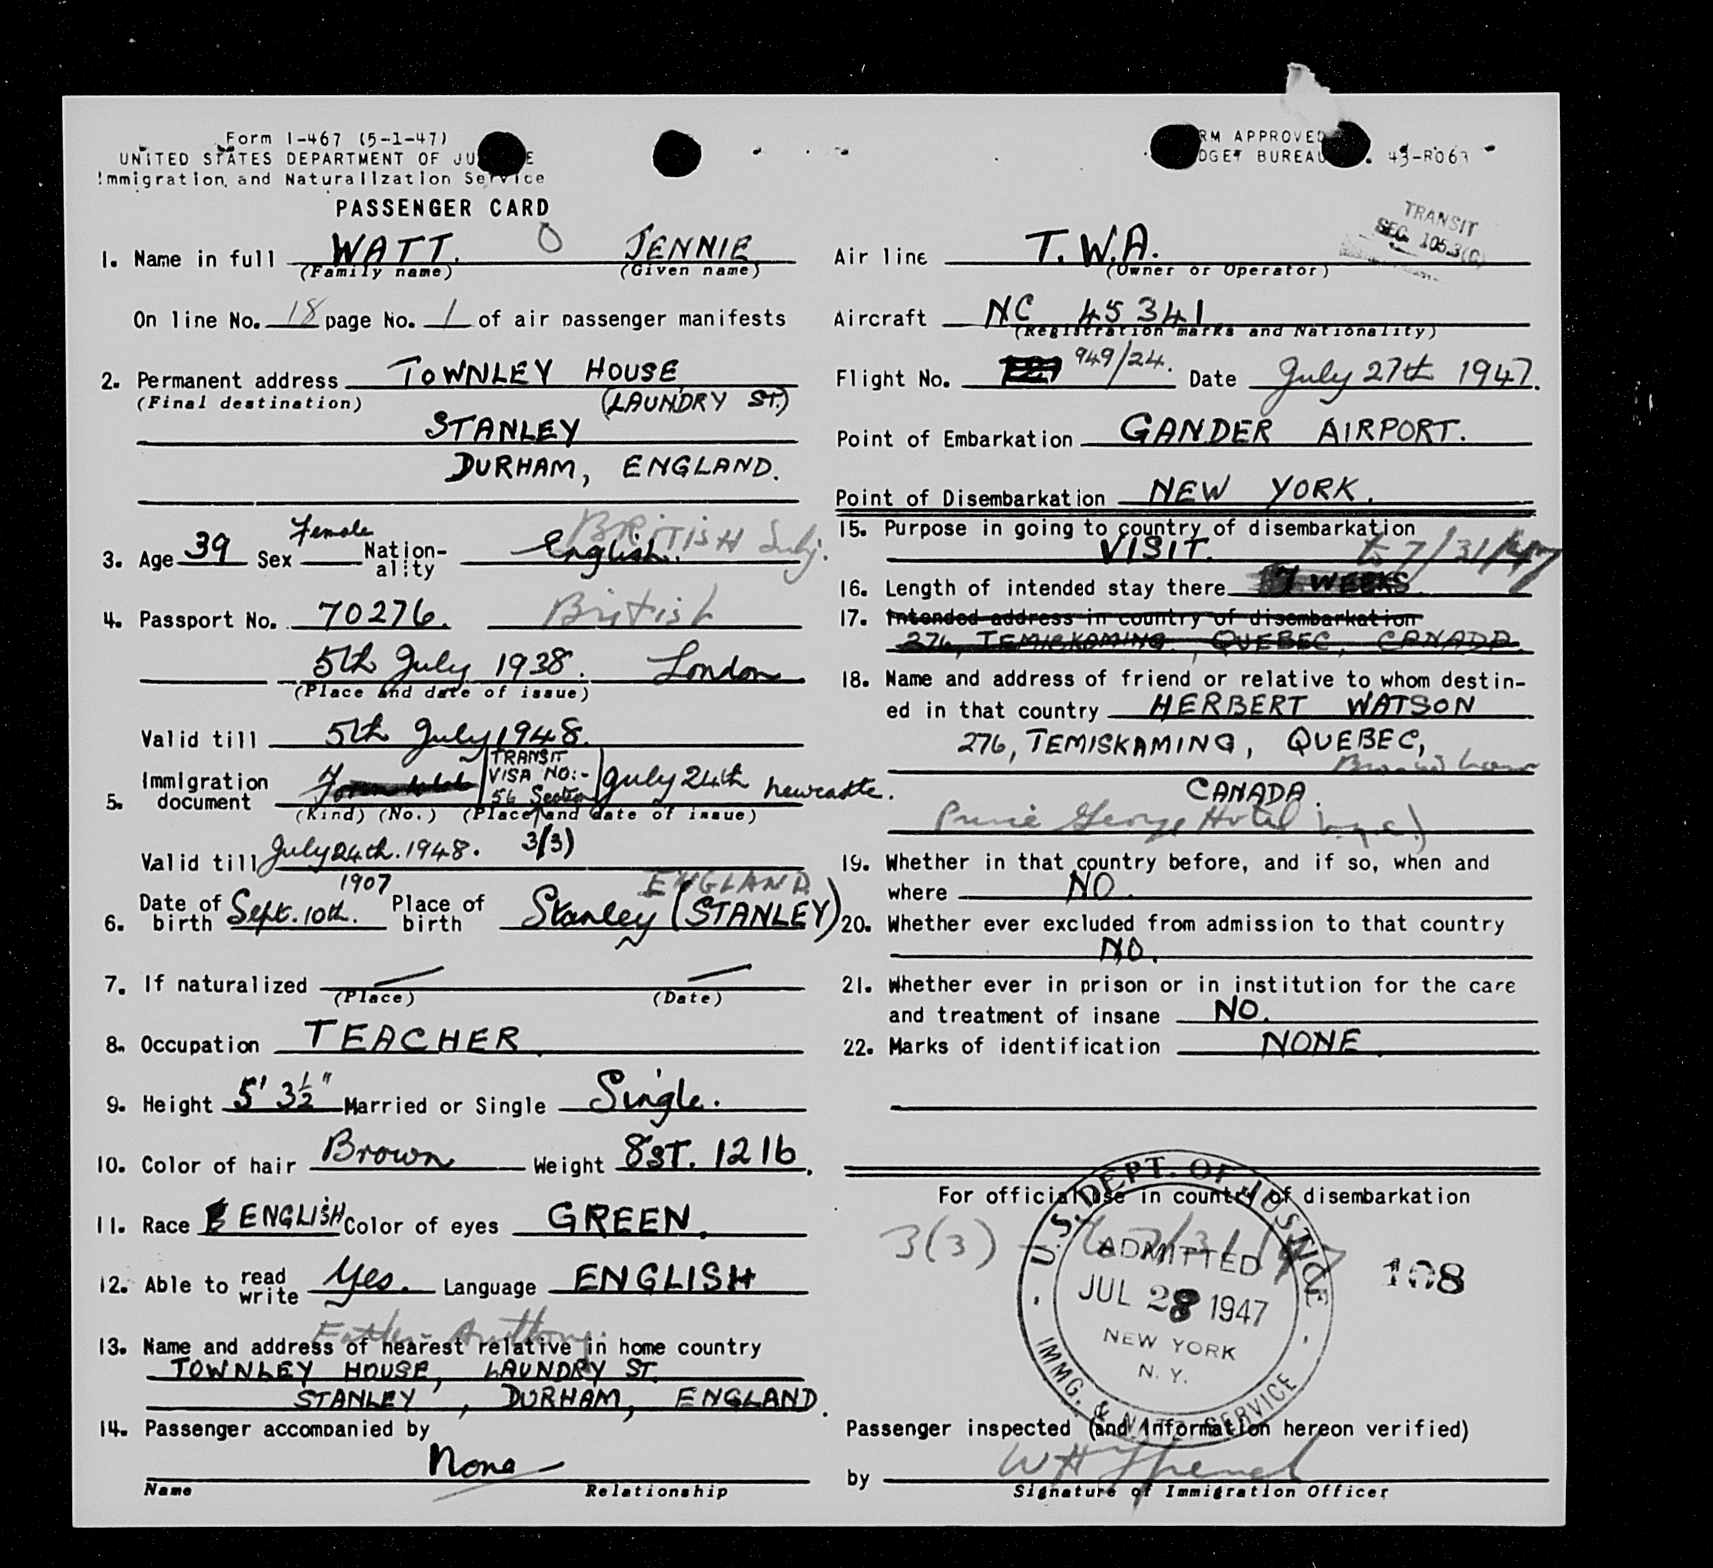 Form I-467 (5-1-47)
UNITED STATES DEPARTMENT OF
Immigration and Naturalization Service
PASSENGER CARD
1. Name in full WATT. O JENNIE
(Family name) (Given name)
On line No. 18 page No. 1 of air passenger manifests
2. Permanent address TOWNLEY HOUSE
(Final destination) (LAUNDRY ST.)
STANLEY
DURHAM, ENGLAND.
3. Age 39 Sex Female Nation-ality English. BRITISH Subj.
4. Passport No. 70276. British
5th July 1938. London
(Place and date of issue)
Valid till 5th July 1948.
5. Immigration document TRANSIT VISA NO:- 56 Section July 24th newcastle.
(Kind) (No.) (Place and date of issue)
Valid till July 24th. 1948. 3(3)
6. Date of birth Sept. 10th. 1907 Place of birth Stanley (STANLEY) ENGLAND
7. If naturalized
(Place) (Date)
8. Occupation TEACHER.
9. Height 5' 3½" Married or Single Single.
10. Color of hair Brown Weight 8ST. 12 lb.
11. Race ENGLISH Color of eyes GREEN.
12. Able to read write Yes. Language ENGLISH
Father - Anthony.
13. Name and address of nearest relative in home country
TOWNLEY HOUSE, LAUNDRY ST.
STANLEY, DURHAM, ENGLAND.
14. Passenger accompanied by
None
Name Relationship
RM APPROVED
DGET BUREAU 43-R063
TRANSIT
SEC. 105.3(C)
Air line T.W.A.
(Owner or Operator)
Aircraft NC 45341
(Registration marks and Nationality)
Flight No. 949/24. Date July 27th 1947.
Point of Embarkation GANDER AIRPORT.
Point of Disembarkation NEW YORK.
15. Purpose in going to country of disembarkation
VISIT. to 7/31/47
16. Length of intended stay there 7 WEEKS
17. Intended address in country of disembarkation
276, TEMISKAMING, QUEBEC, CANADA.
18. Name and address of friend or relative to whom destin-
ed in that country HERBERT WATSON
276, TEMISKAMING, QUEBEC,
CANADA.
George Hotel
19. Whether in that country before, and if so, when and
where NO.
20. Whether ever excluded from admission to that country
NO.
21. Whether ever in prison or in institution for the care
and treatment of insane NO.
22. Marks of identification NONE.
For official use in country of disembarkation
3(3) - to 7/31/47
U.S. DEPT. OF JUSTICE
ADMITTED
JUL 28 1947
NEW YORK
N. Y.
IMMG. & NATZ. SERVICE
108
Passenger inspected (and information hereon verified)
by
Signature of Immigration Officer